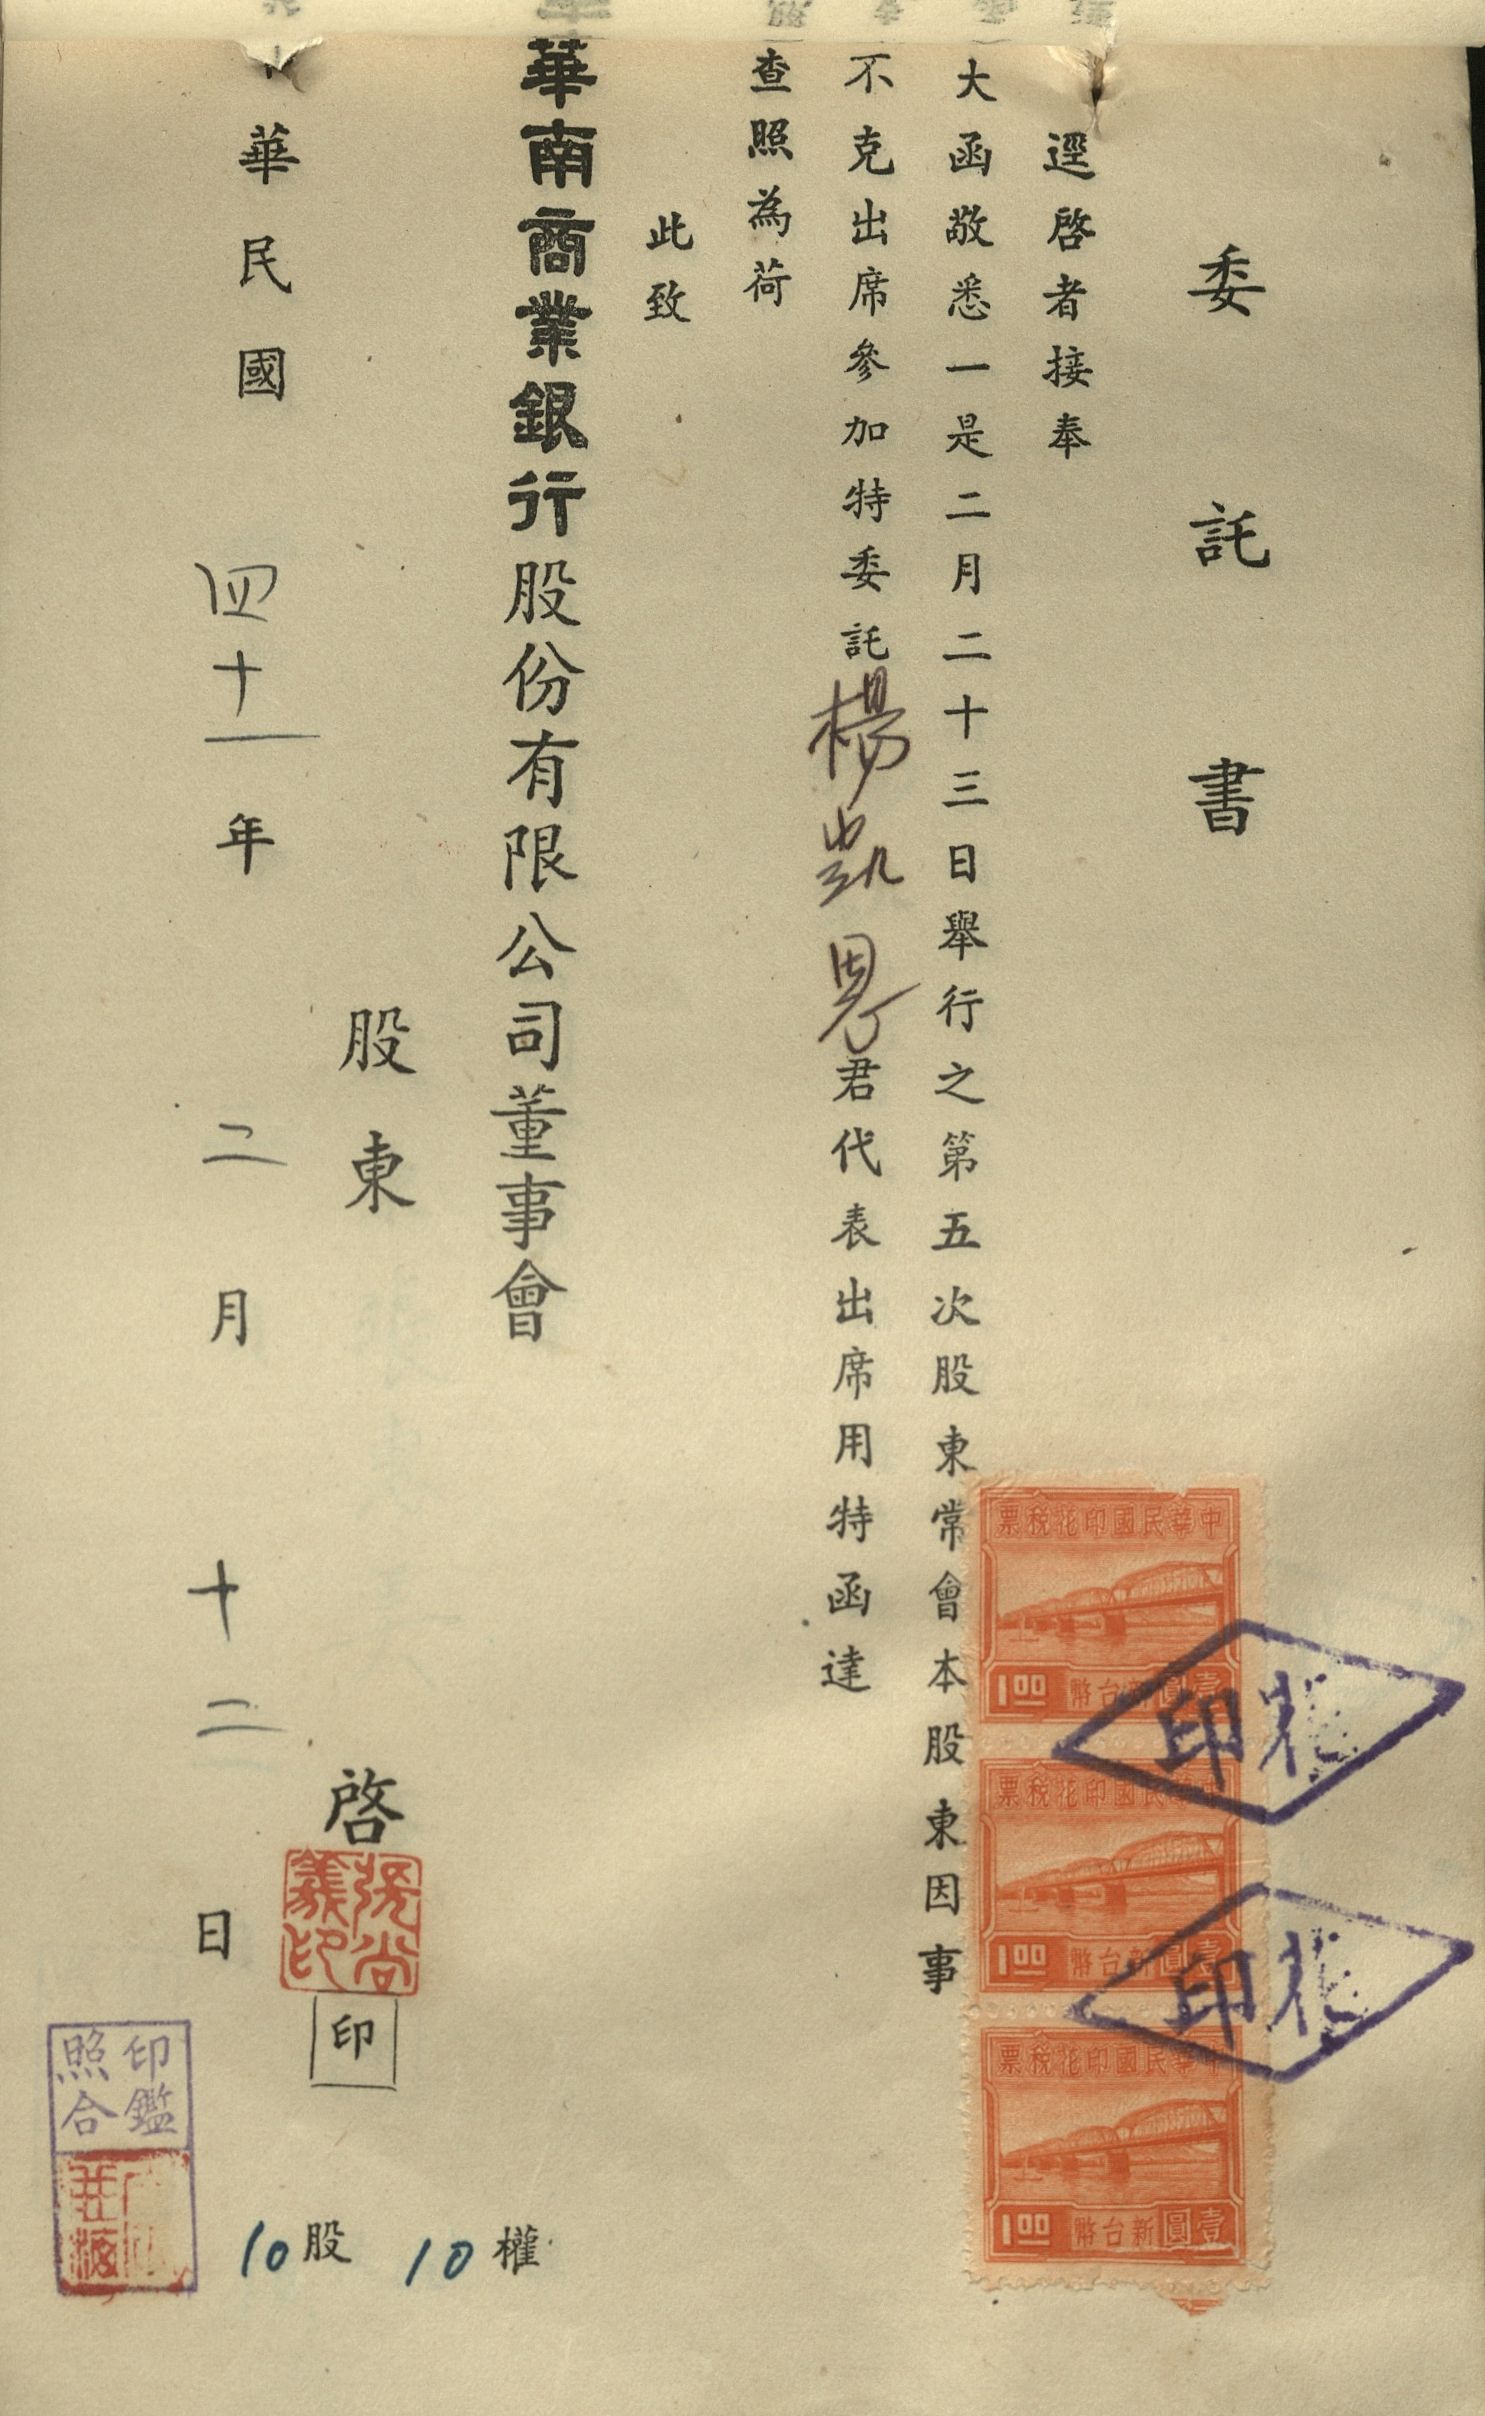 委託書
逕啓者接奉
大函敬悉一是二月二十三日舉行之第五次股東常會本股東因事
不克出席參加特委託楊凱恩君代表出席用特函達
查照為荷
此致
華南商業銀行股份有限公司董事會
股東 啓
張尚義印
印
華民國四十一年二月十二日
印鑑照合
10股 10權
中華民國印花稅票
壹圓新台幣 1.00
中華民國印花稅票
壹圓新台幣 1.00
中華民國印花稅票
壹圓新台幣 1.00
花印
花印